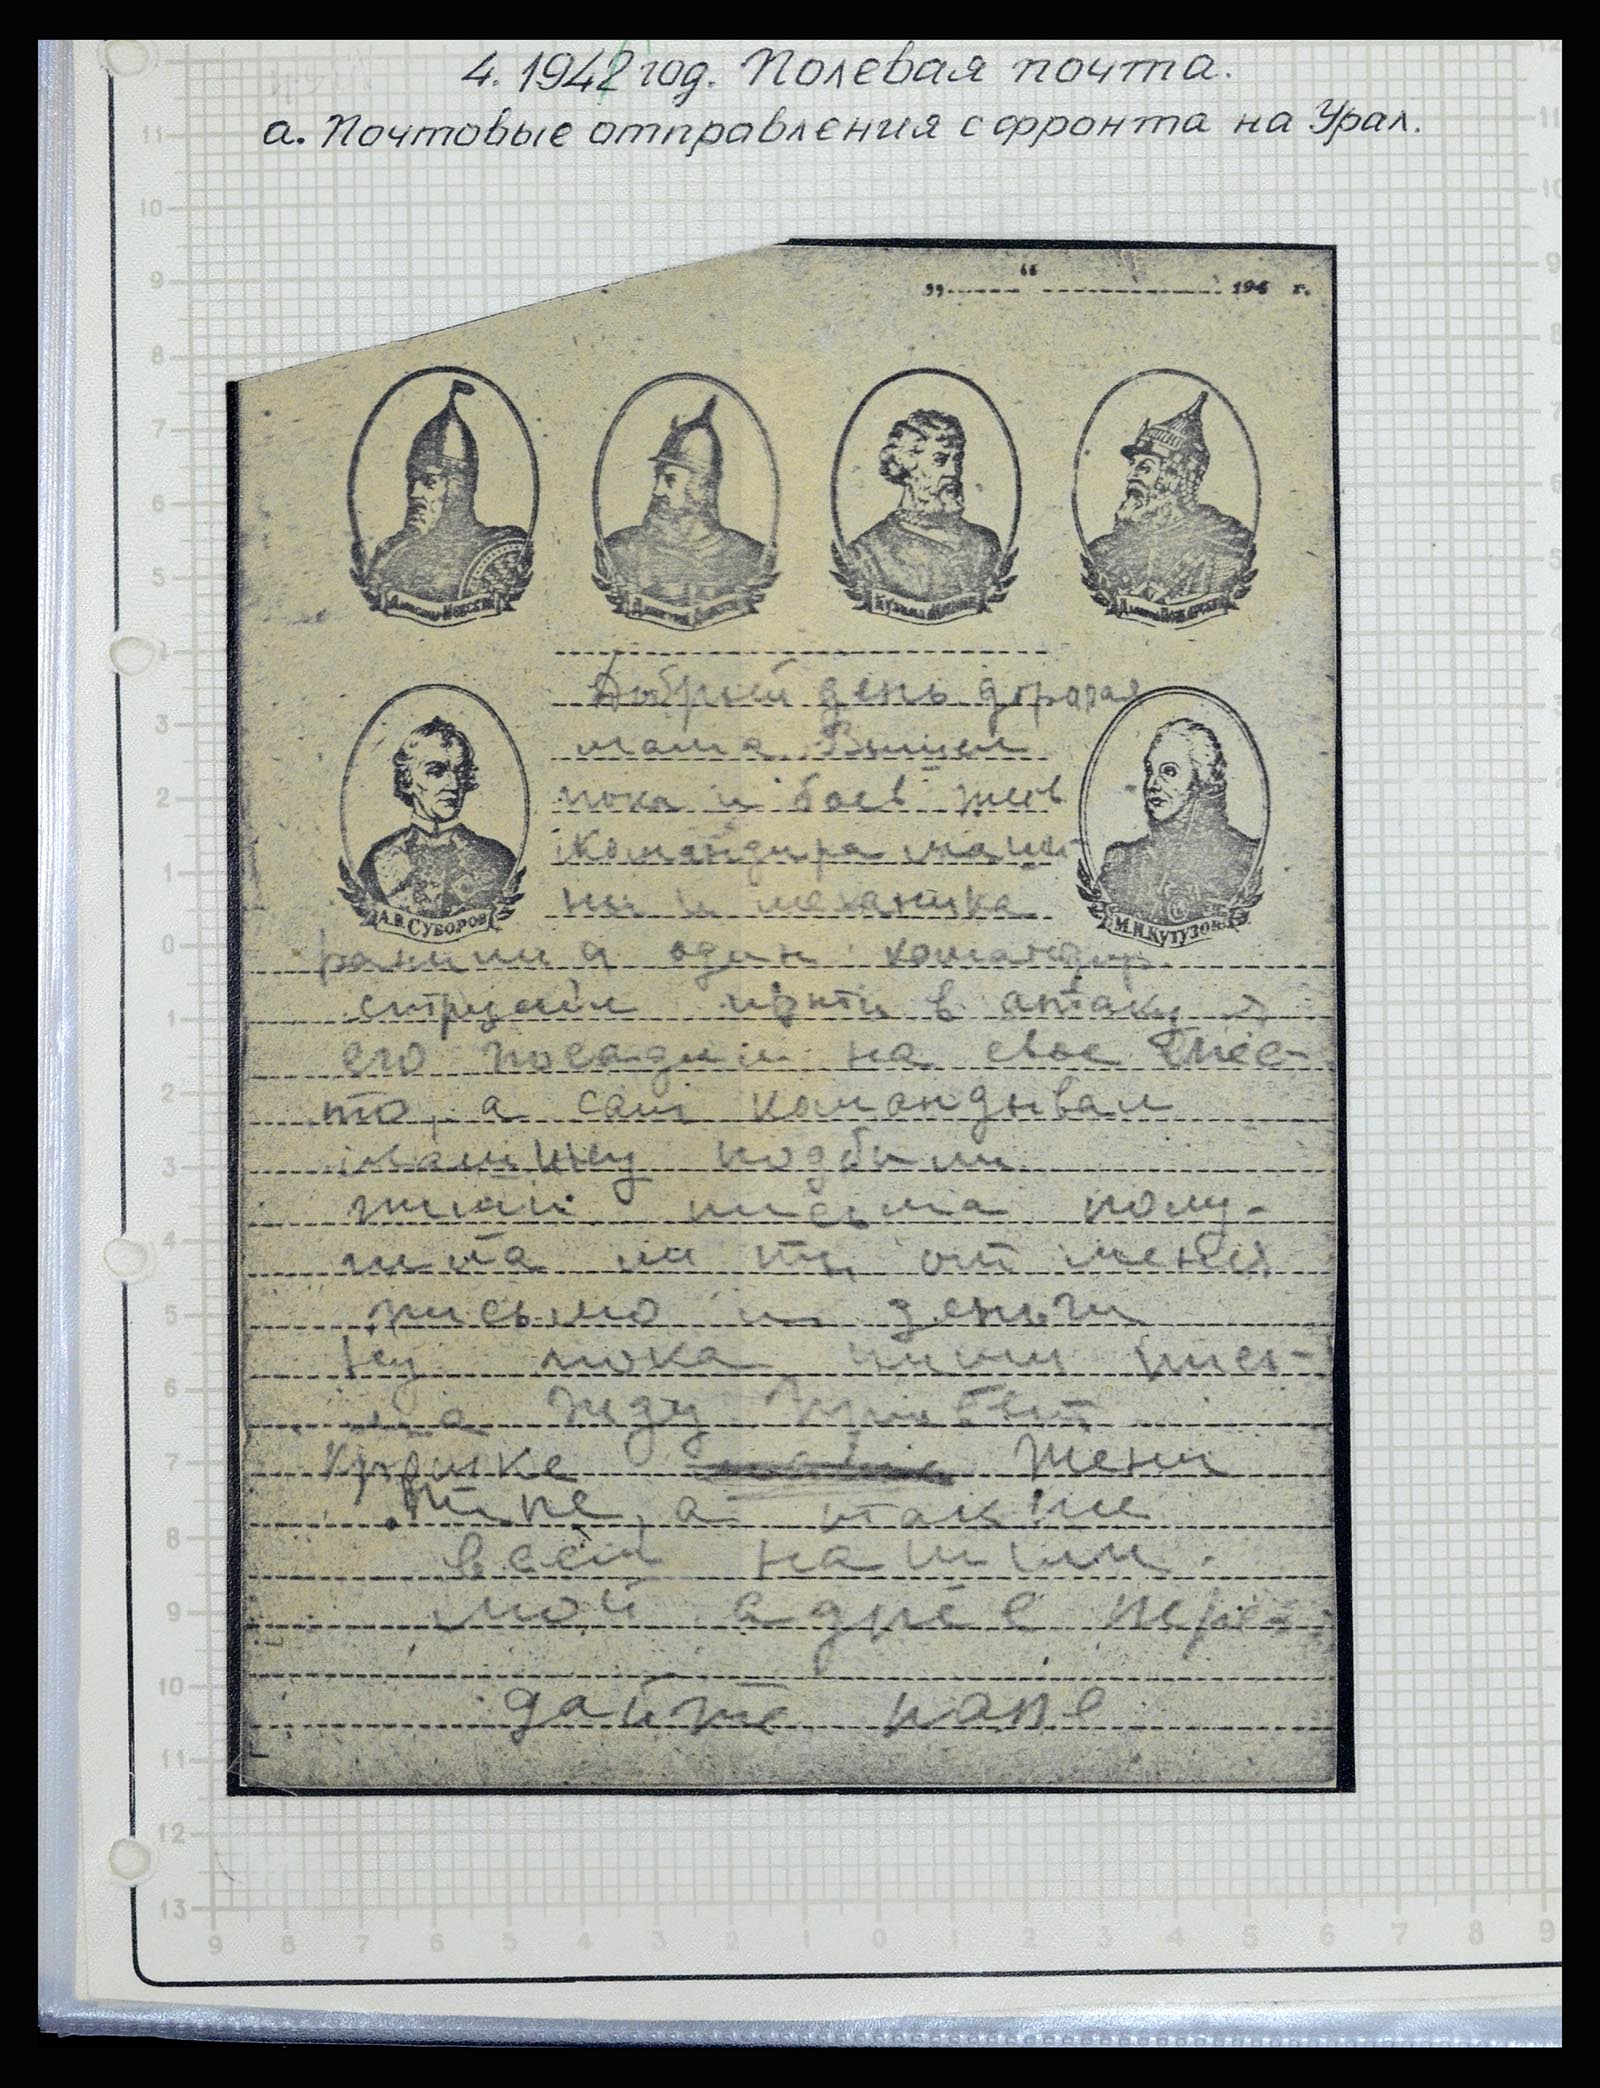 4. 1942 год. Полевая почта.
а. Почтовые отправления с фронта на Урал.
„ “ 194 г.
Александр Невский
Димитрий Донской
Кузьма Минин
Димитрий Пожарский
А.В. Суворов
М.И. Кутузов
Добрый день дорогая
мама. Вышел
пока из боев жив
командира маши-
ны и механика
ранили один командир
струсил идти в атаку я
его посадил на свое мес-
то, а сам командывал
машину подбили
письма полу-
ли ты от меня
письмо и деньги
Ну пока пиши пись-
ма жду Привет
Жени
а также
всем нашим.
мой адрес пере-
дайте папе